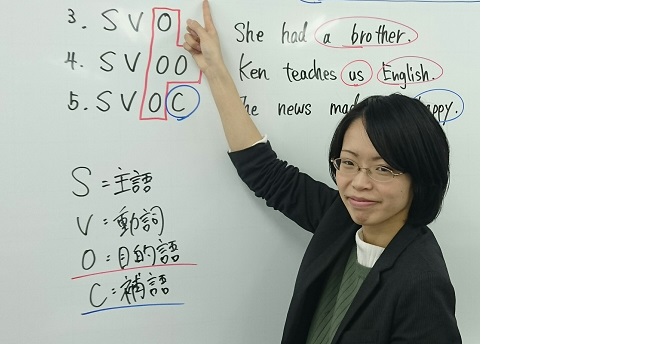 3. S V O She had a brother.
4. S V O O Ken teaches us English.
5. S V O C The news
S = 主語
V : 動詞
O : 目的語
C : 補語